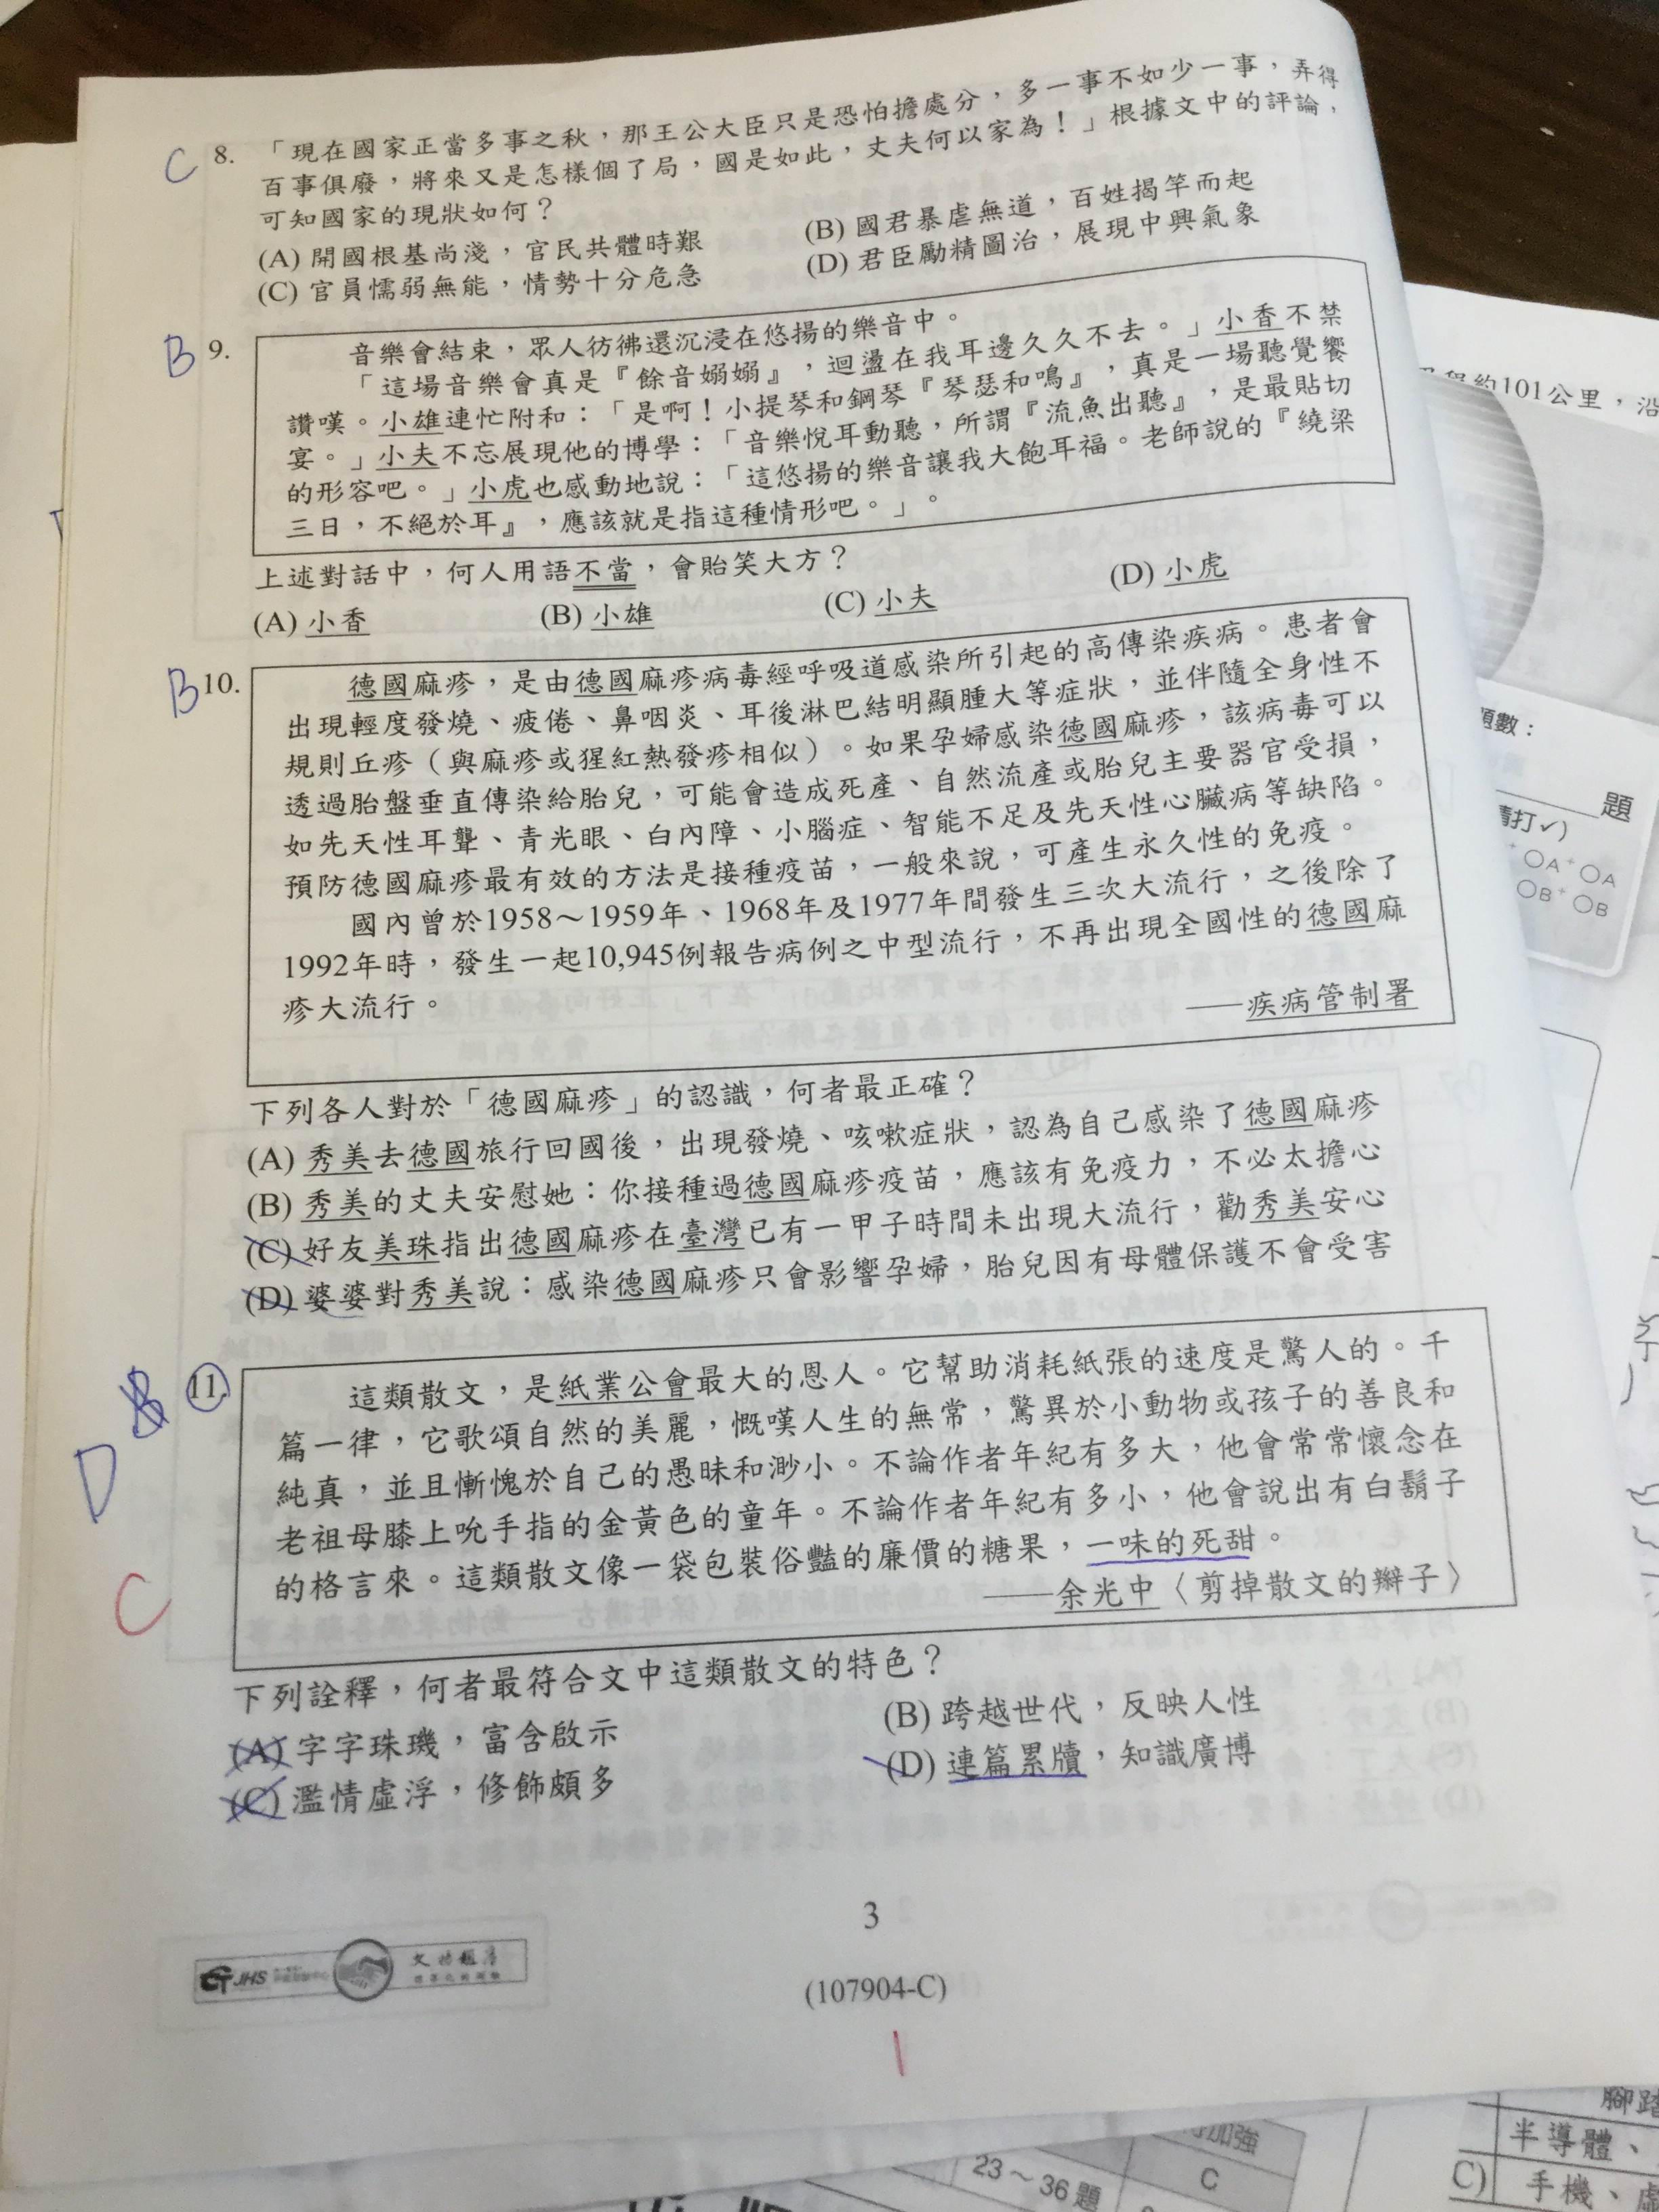 C 8. 「現在國家正當多事之秋，那王公大臣只是恐怕擔處分，多一事不如少一事，弄得
百事俱廢，將來又是怎樣個了局，國是如此，丈夫何以家為！」根據文中的評論，
可知國家的現狀如何？
(A) 開國根基尚淺，官民共體時艱 (B) 國君暴虐無道，百姓揭竿而起
(C) 官員懦弱無能，情勢十分危急 (D) 君臣勵精圖治，展現中興氣象
B 9. 音樂會結束，眾人彷彿還沉浸在悠揚的樂音中。
「這場音樂會真是『餘音嫋嫋』，迴盪在我耳邊久久不去。」小香不禁
讚嘆。小雄連忙附和：「是啊！小提琴和鋼琴『琴瑟和鳴』，真是一場聽覺饗
宴。」小夫不忘展現他的博學：「音樂悅耳動聽，所謂『流魚出聽』，是最貼切
的形容吧。」小虎也感動地說：「這悠揚的樂音讓我大飽耳福。老師說的『繞梁
三日，不絕於耳』，應該就是指這種情形吧。」。
上述對話中，何人用語不當，會貽笑大方？
(A) 小香 (B) 小雄 (C) 小夫 (D) 小虎
B 10. 德國麻疹，是由德國麻疹病毒經呼吸道感染所引起的高傳染疾病。患者會
出現輕度發燒、疲倦、鼻咽炎、耳後淋巴結明顯腫大等症狀，並伴隨全身性不
規則丘疹（與麻疹或猩紅熱發疹相似）。如果孕婦感染德國麻疹，該病毒可以
透過胎盤垂直傳染給胎兒，可能會造成死產、自然流產或胎兒主要器官受損，
如先天性耳聾、青光眼、白內障、小腦症、智能不足及先天性心臟病等缺陷。
預防德國麻疹最有效的方法是接種疫苗，一般來說，可產生永久性的免疫。
國內曾於1958～1959年、1968年及1977年間發生三次大流行，之後除了
1992年時，發生一起10,945例報告病例之中型流行，不再出現全國性的德國麻
疹大流行。
——疾病管制署
下列各人對於「德國麻疹」的認識，何者最正確？
(A) 秀美去德國旅行回國後，出現發燒、咳嗽症狀，認為自己感染了德國麻疹
(B) 秀美的丈夫安慰她：你接種過德國麻疹疫苗，應該有免疫力，不必太擔心
(C) 好友美珠指出德國麻疹在臺灣已有一甲子時間未出現大流行，勸秀美安心
(D) 婆婆對秀美說：感染德國麻疹只會影響孕婦，胎兒因有母體保護不會受害
D
C
11. 這類散文，是紙業公會最大的恩人。它幫助消耗紙張的速度是驚人的。千
篇一律，它歌頌自然的美麗，慨嘆人生的無常，驚異於小動物或孩子的善良和
純真，並且慚愧於自己的愚昧和渺小。不論作者年紀有多大，他會常常懷念在
老祖母膝上吮手指的金黃色的童年。不論作者年紀有多小，他會說出有白鬍子
的格言來。這類散文像一袋包裝俗豔的廉價的糖果，一味的死甜。
——余光中〈剪掉散文的辮子〉
下列詮釋，何者最符合文中這類散文的特色？
(A) 字字珠璣，富含啟示 (B) 跨越世代，反映人性
(C) 濫情虛浮，修飾頗多 (D) 連篇累牘，知識廣博
3
(107904-C)
JHS
約101公里，沿
題數：
題
請打✓)
○A ○A
○B ○B
加強
23～36題
C
腳踏
半導體、
C) 手機、